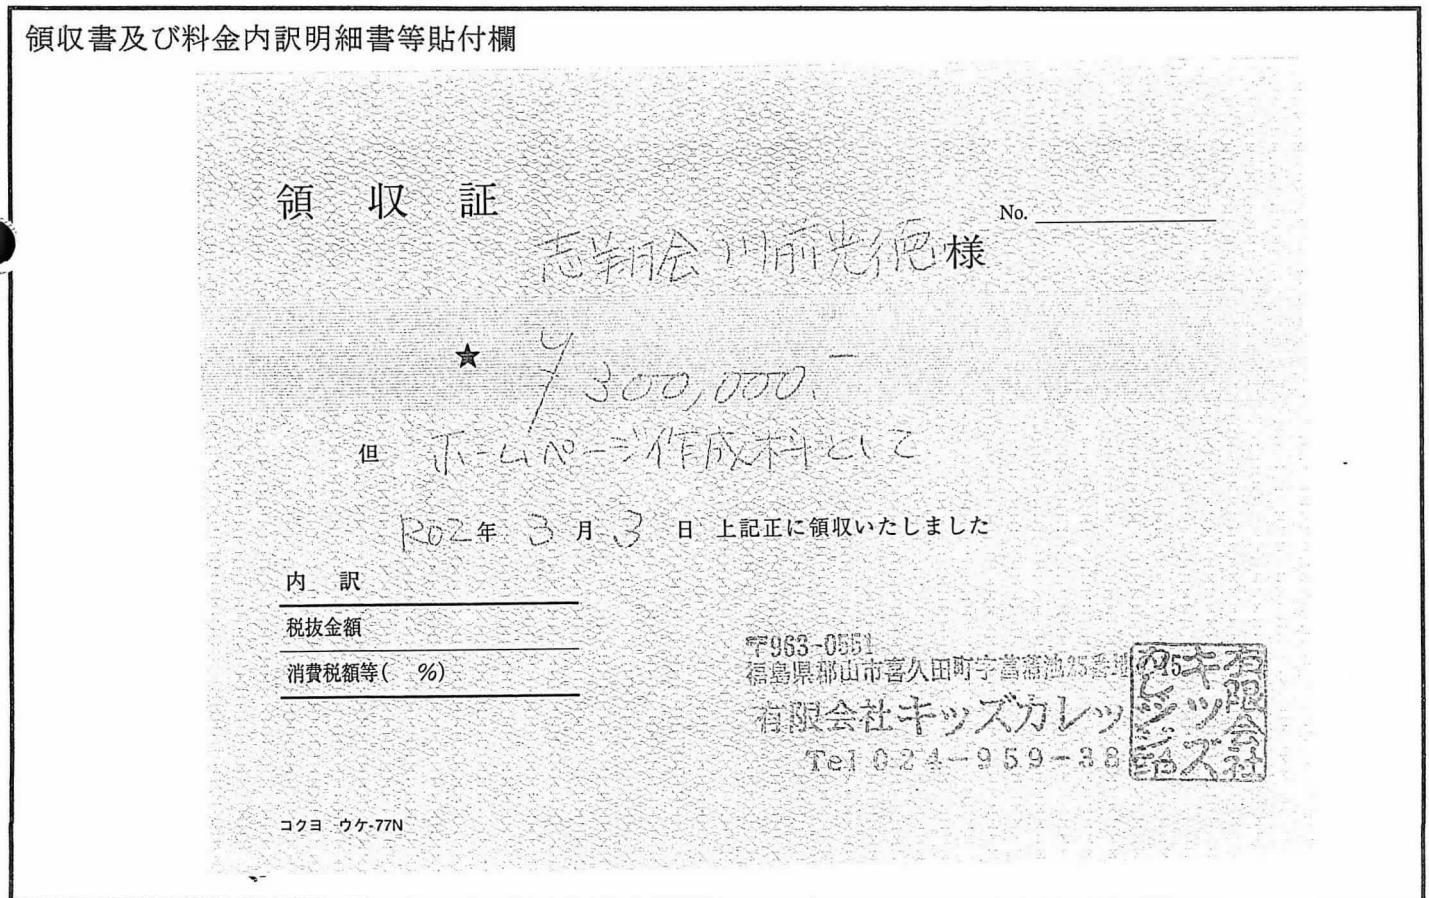 領収書及び料金内訳明細書等貼付欄
領 収 証
No.
志翔会 川前光徳 様
★ ¥300,000.-
但 ホームページ作成料として
R02年 3月 3日 上記正に領収いたしました
内 訳
税抜金額
消費税額等( %)
〒963-0551
福島県郡山市喜久田町字菖蒲池25番地
有限会社キッズカレッジ
Tel 024-959-38
有限会社キッズカレッジ
コクヨ ウケ-77N